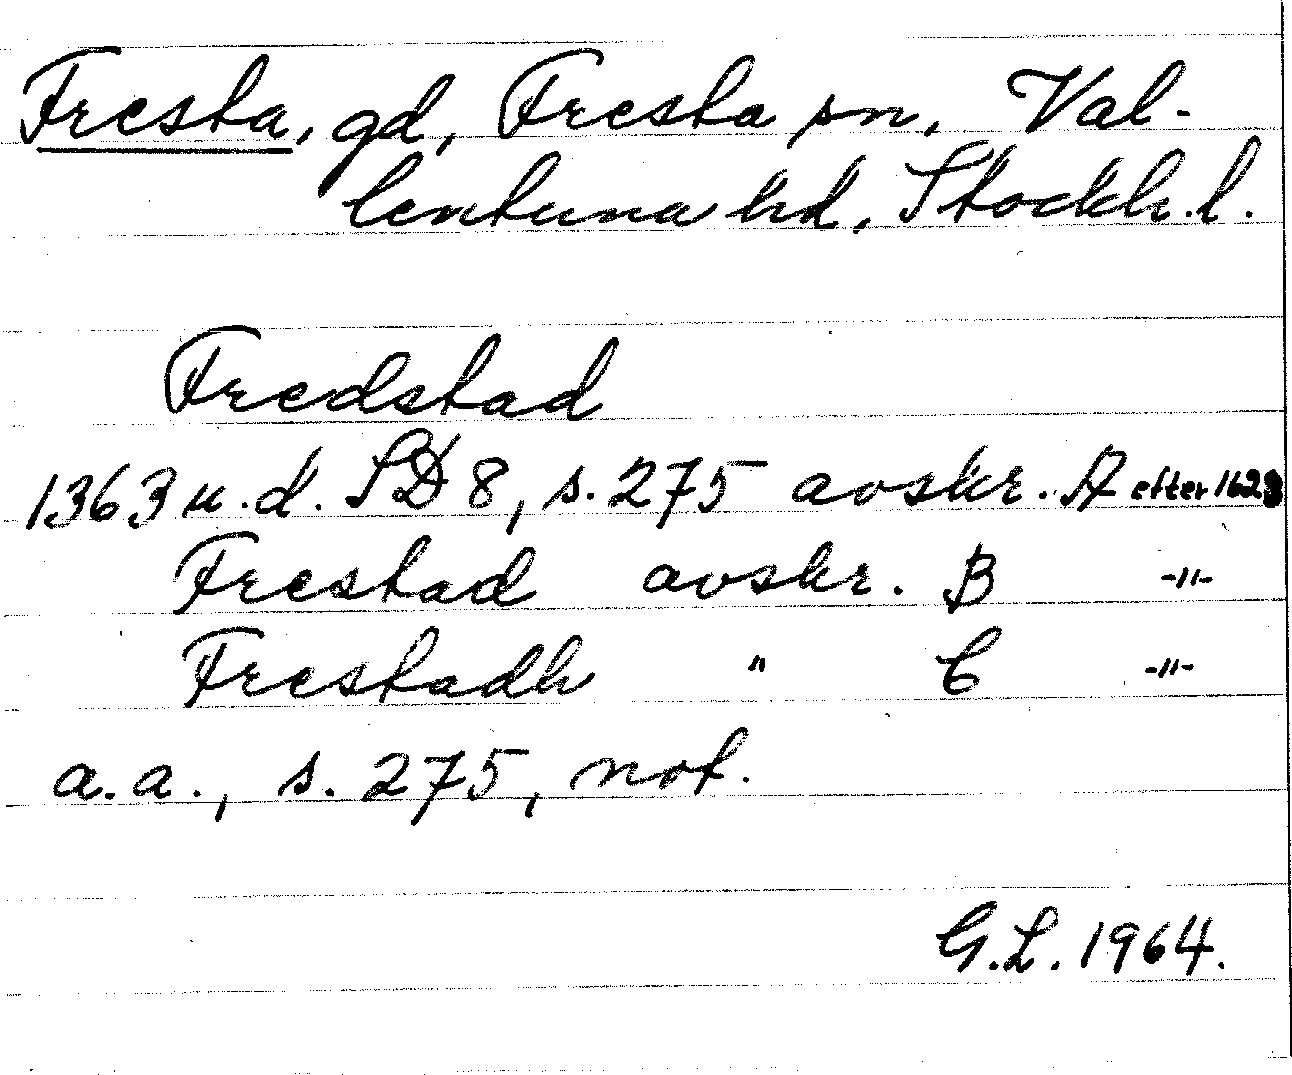 Fresta, gd, Fresta sn, Val-
lentuna hd, Stockh.l.
Fredstad
1363 u.d. SD 8, s. 275 avskr. A efter 1628
Frestad avskr. B -"-
Frestadh " C -"-
a.a., s. 275, not.
G.L. 1964.